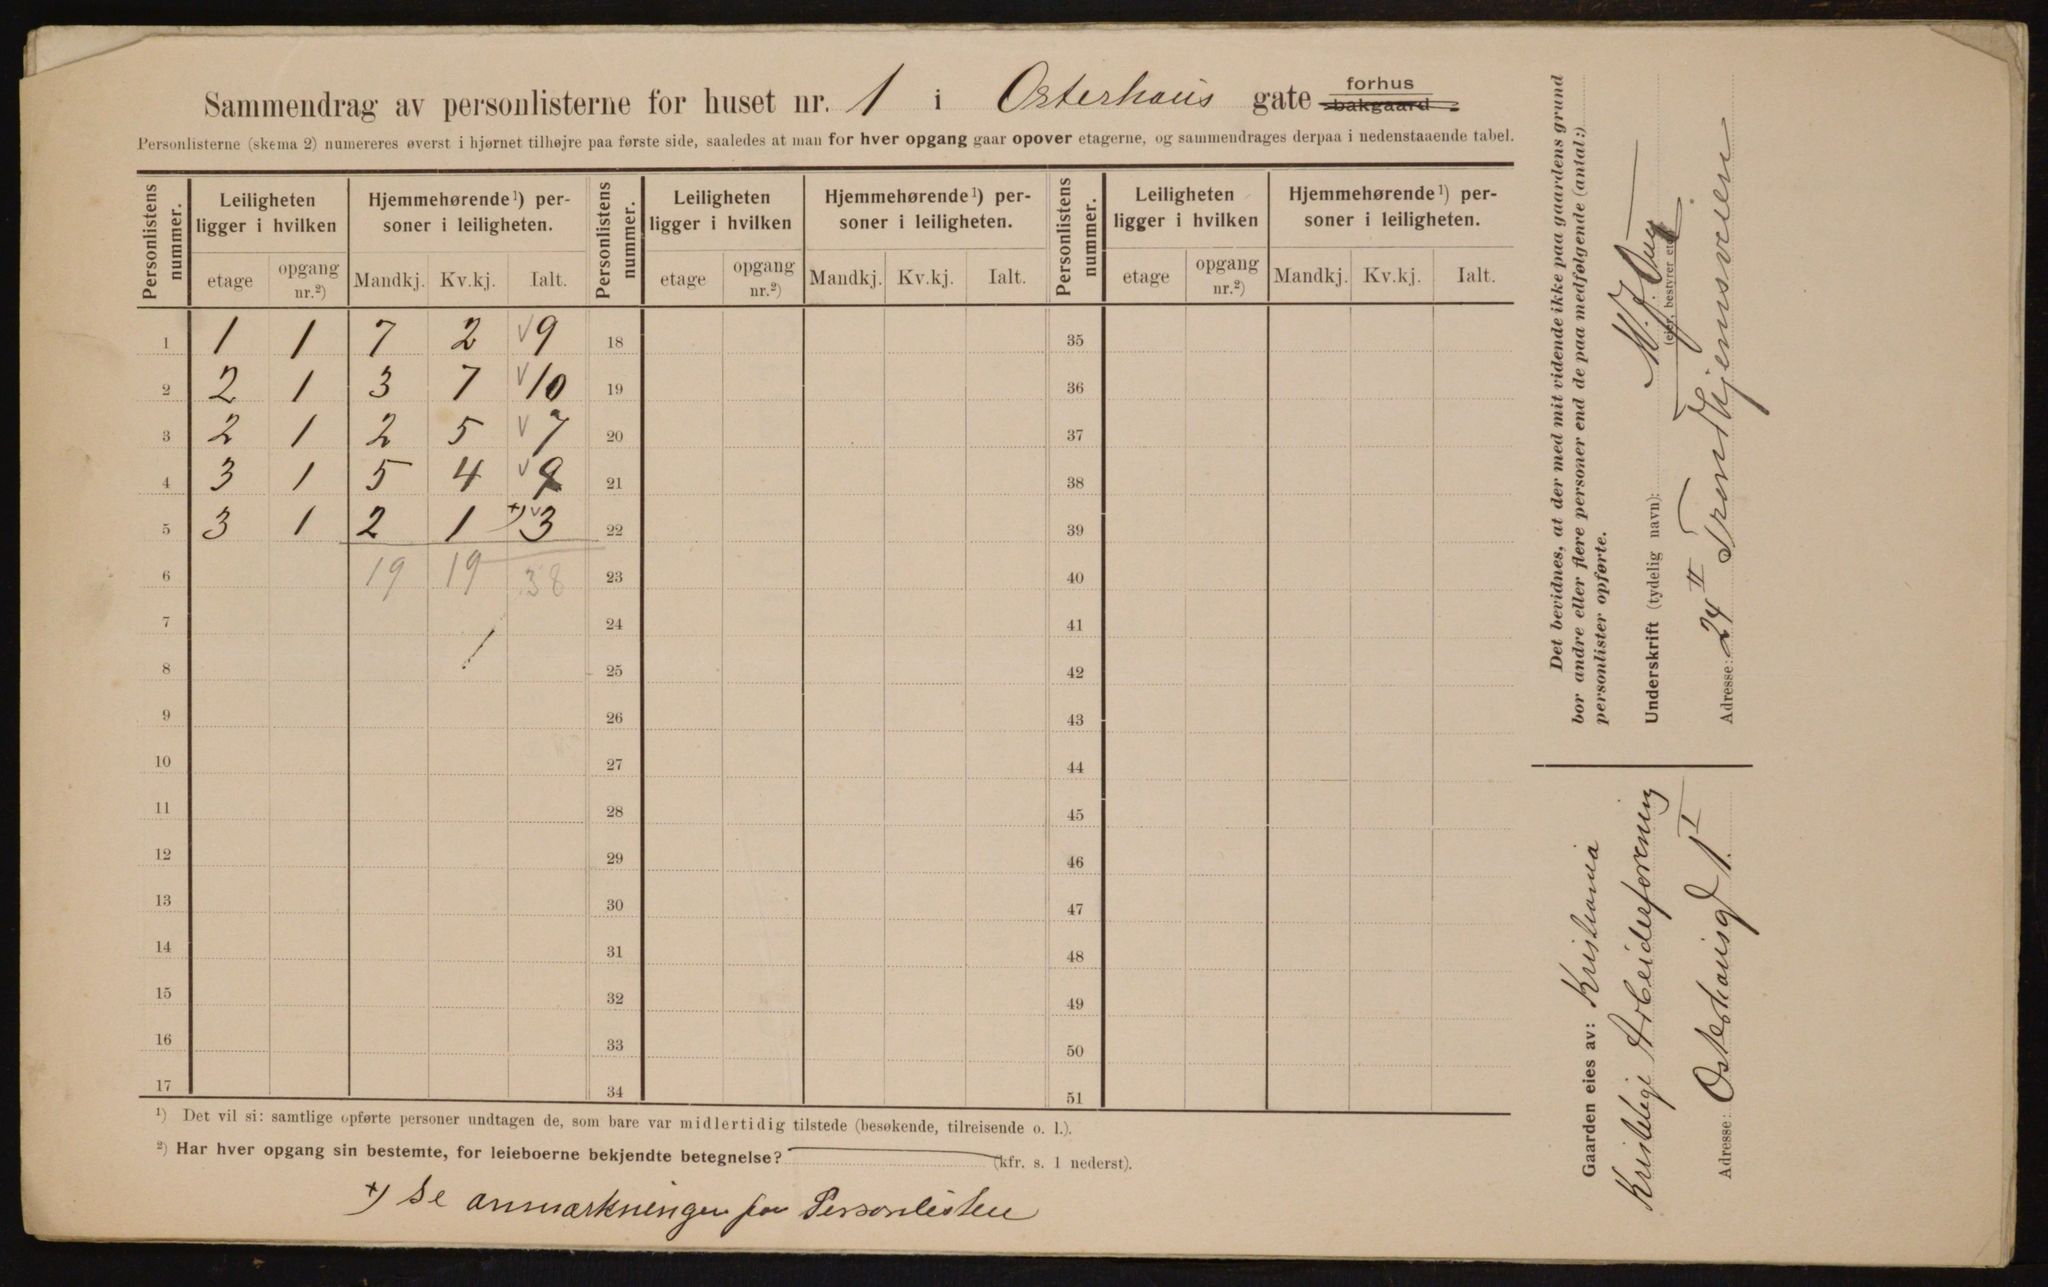 Sammendrag av personlisterne for huset nr. 1 i Osterhaus gate forhus bakgaard
Personlisterne (skema 2) numereres øverst i hjørnet tilhøjre paa første side, saaledes at man for hver opgang gaar opover etagerne, og sammendrages derpaa i nedenstaaende tabel.
Personlistens nummer. Leiligheten ligger i hvilken Hjemmehørende ¹) personer i leiligheten. Personlistens nummer. Leiligheten ligger i hvilken Hjemmehørende ¹) personer i leiligheten. Personlistens nummer. Leiligheten ligger i hvilken Hjemmehørende ¹) personer i leiligheten.
etage opgang nr.²) Mandkj. Kv.kj. Ialt. etage opgang nr.²) Mandkj. Kv.kj. Ialt. etage opgang nr.²) Mandkj. Kv.kj. Ialt.
1 1 1 7 2 √9 18 35
2 2 1 3 7 √10 19 36
3 2 1 2 5 √7 20 37
4 3 1 5 4 √9 21 38
5 3 1 2 1 +) √3 22 39
6 19 19 38 23 40
7 24 41
8 25 42
9 26 43
10 27 44
11 28 45
12 29 46
13 30 47
14 31 48
15 32 49
16 33 50
17 34 51
¹) Det vil si: samtlige opførte personer undtagen de, som bare var midlertidig tilstede (besøkende, tilreisende o. l.).
²) Har hver opgang sin bestemte, for leieboerne bekjendte betegnelse? (kfr. s. 1 nederst).
+) Se anmærkningen paa Personlisten
Det bevidnes, at der med mit vidende ikke paa gaardens grund
bor andre eller flere personer end de paa medfølgende (antal:)
personlister opførte.
Underskrift (tydelig navn):
(eier, bestyrer etc.)
Adresse: 24 II Trondhjemsveien
Gaarden eies av: Kristiania
Kristelige Arbeiderforening
Adresse: Osterhausgt 1. I